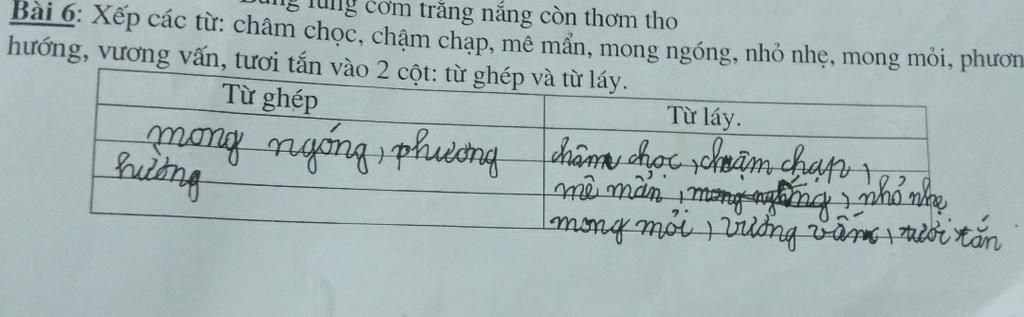 Bài 6: Xếp các từ: châm chọc, chậm chạp, mê mẩn, mong ngóng, nhỏ nhẹ, mong mỏi, phươn
hướng, vương vấn, tươi tắn vào 2 cột: từ ghép và từ láy.
Từ ghép
Từ láy.
mong ngóng, phương
hướng
châm chọc, chậm chạp,
mê mẩn, mong ngóng, nhỏ nhẹ
mong mỏi, vương vấn, tươi tắn
cơm trắng nắng còn thơm tho